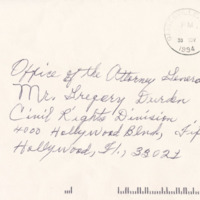 1994
Office of the Attorney General
Mr. Gregory Durden
Civil Rights Division
4000 Hollywood Blvd,
Hollywood, Fl., 33021